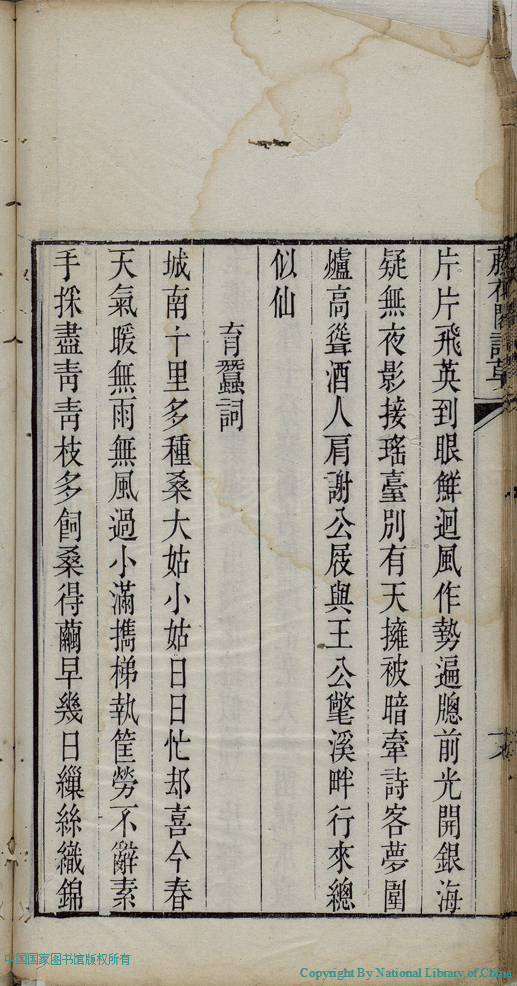 片片飛英到眼鮮迴風作勢遍牎前光開銀海
疑無夜影接瑤臺別有天擁被暗牽詩客夢圍
爐高聳酒人肩謝公屐與王公氅溪畔行來總
似仙
育蠶詞
城南十里多種桑大姑小姑日日忙却喜今春
天氣暖無雨無風過小滿攜梯執筐勞不辭素
手採盡靑靑枝多飼桑得繭早幾日繅絲織錦
中国国家图书馆版权所有
Copyright By National Library of China